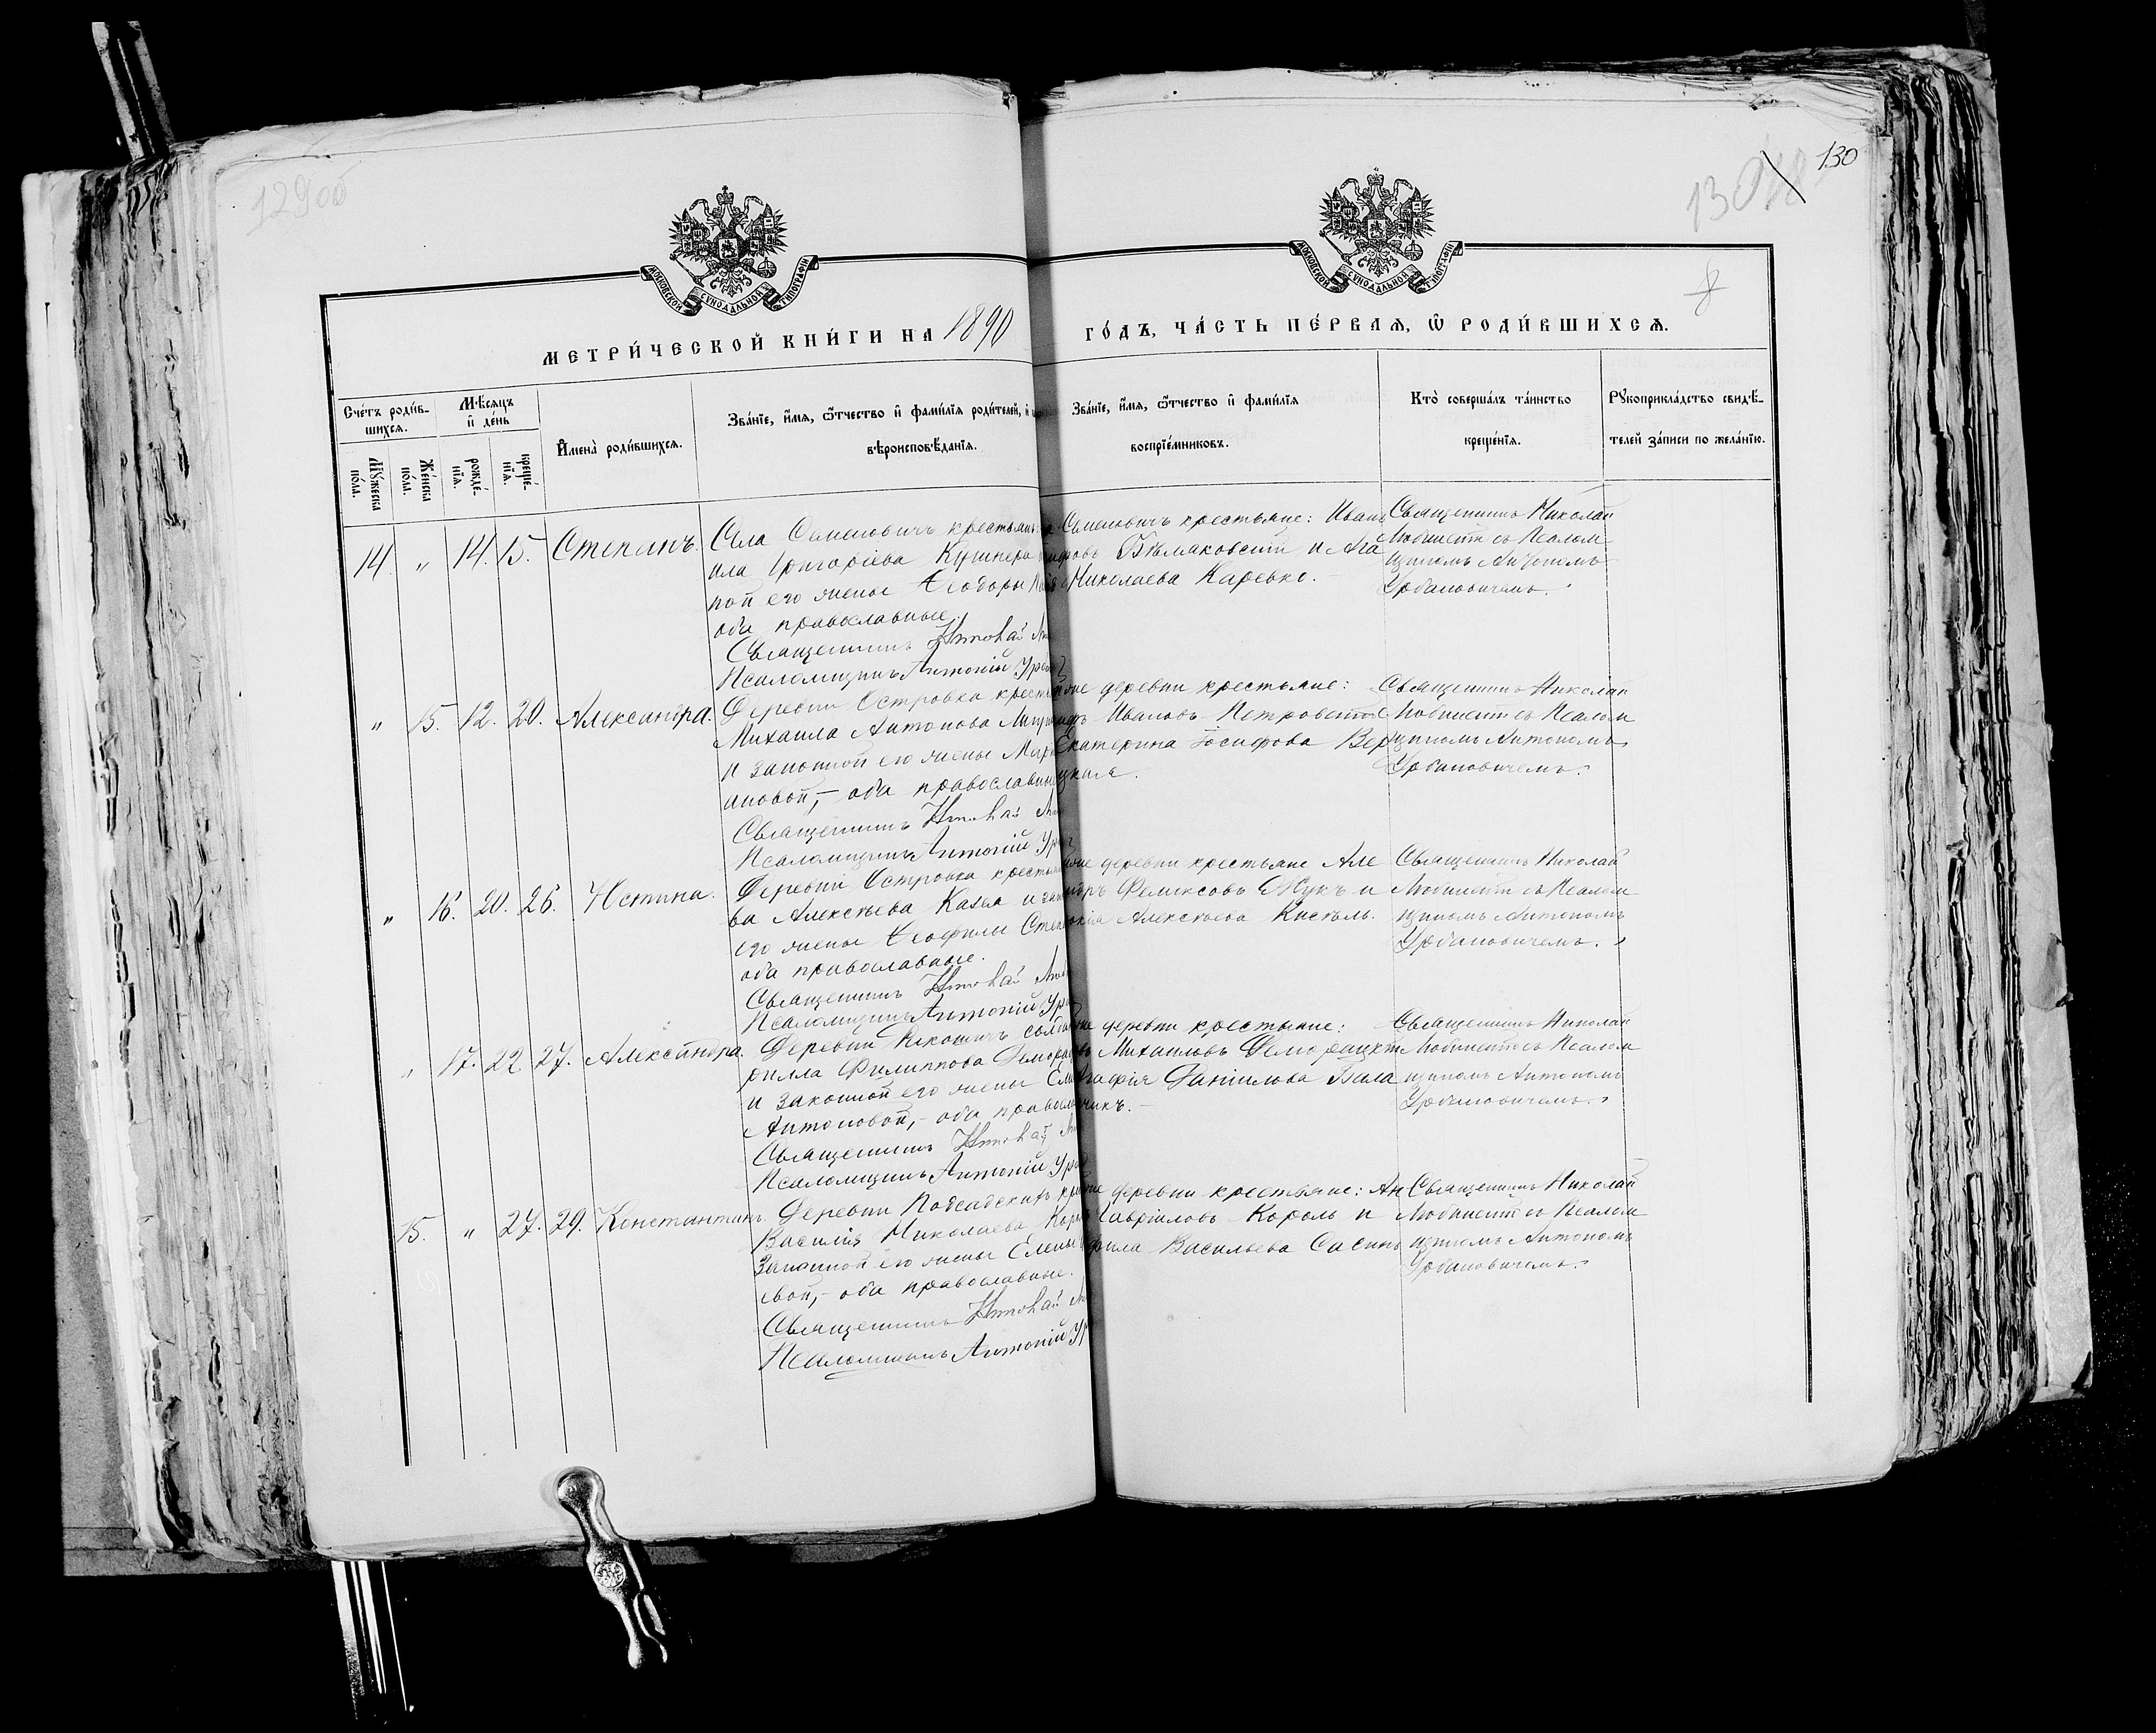 129об
130
130
8
МОСКОВСКОЙ СѴНОДАЛЬНОЙ ТИПОГРАФІИ
МОСКОВСКОЙ СѴНОДАЛЬНОЙ ТИПОГРАФІИ
МЕТРИ́ЧЕСКОЙ КНИ́ГИ НА 1890
ГО́ДЪ, ЧА́СТЬ ПЕ́РВАѦ, Ѽ РОДИ́ВШИХСѦ.
Сче́тъ роди́в-
шихсѧ.
Мѣ́сѧцъ
и҆ де́нь
Мꙋ́жеска
по́ла.
Же́нска
по́ла.
рожде́-
нїѧ.
креще́-
нїѧ.
И҆мена̀ роди́вшихсѧ.
Зва́нїе, и҆́мѧ, ѻ҆́тчество и҆ фами́лїѧ роди́телей, и҆
вѣроисповѣ́данїѧ.
Зва́нїе, и҆́мѧ, ѻ҆́тчество и҆ фами́лїѧ
воспрїе́мниковъ.
Кто̀ соверша́лъ та́инство
креще́нїѧ.
Рꙋкоприкла́дство свидѣ́-
телей за́писи по жела́нїю.
14. " 14. 15. Степанъ.
Села Семеновичъ крестьян
ила Григоріева Кушнера
ной его жены Ѳеодоры
оба православные.
Священникъ Николай
Псаломщикъ Антоній
Семеновичъ крестьяне: Иван
Бѣлаковскій и Ага
Николаева Каревко.
Священникъ Николай
Любинскій съ Псалом-
щикомъ Антономъ
Урбановичемъ.
" 15. 12. 20. Александра.
Деревни Островка кресть
Михаила Антонова
и законной его жены Мар
ановой, – оба православн
Священникъ Николай
Псаломщикъ Антоній
деревни крестьяне:
Ивановъ Петровскій
Екатерина Іосифова Вер
цкая.
Священникъ Николай
Любинскій съ Псалом
щикомъ Антономъ
Урбановичемъ.
" 16. 20. 26. Юстина.
Деревни Островка кресть
ва Алексѣева Казея и зак
его жены Ѳеофилы Степ
оба православные.
Священникъ Николай
Псаломщикъ Антоній
деревни крестьяне Але
Феликсовъ Жукъ и
Алексѣева Кисѣль.
Священникъ Николай
Любинскій съ Псалом
щикомъ Антономъ
Урбановичемъ.
" 17. 22 27. Александра.
Деревни
рилла Филиппова
и законной его жены
Антоновой, – оба правосл
Священникъ Николай
Псаломщикъ Антоній
деревни крестьяне:
Михаиловъ
Даніилова Бала
никъ.
Священникъ Николай
Любинскій съ Псалом
щикомъ Антономъ
Урбановичемъ.
15. " 27. 29. Константинъ.
Деревни Подсадскихъ кр
Василія Николаева Кор
Законной его жены Елены
вой, – оба православные.
Священникъ Николай
Псаломщикъ Антоній
деревни крестьяне: Ан
Гавріиловъ Король и
Васильева Сасинъ
Священникъ Николай
Любинскій съ Псалом
щикомъ Антономъ
Урбановичемъ.